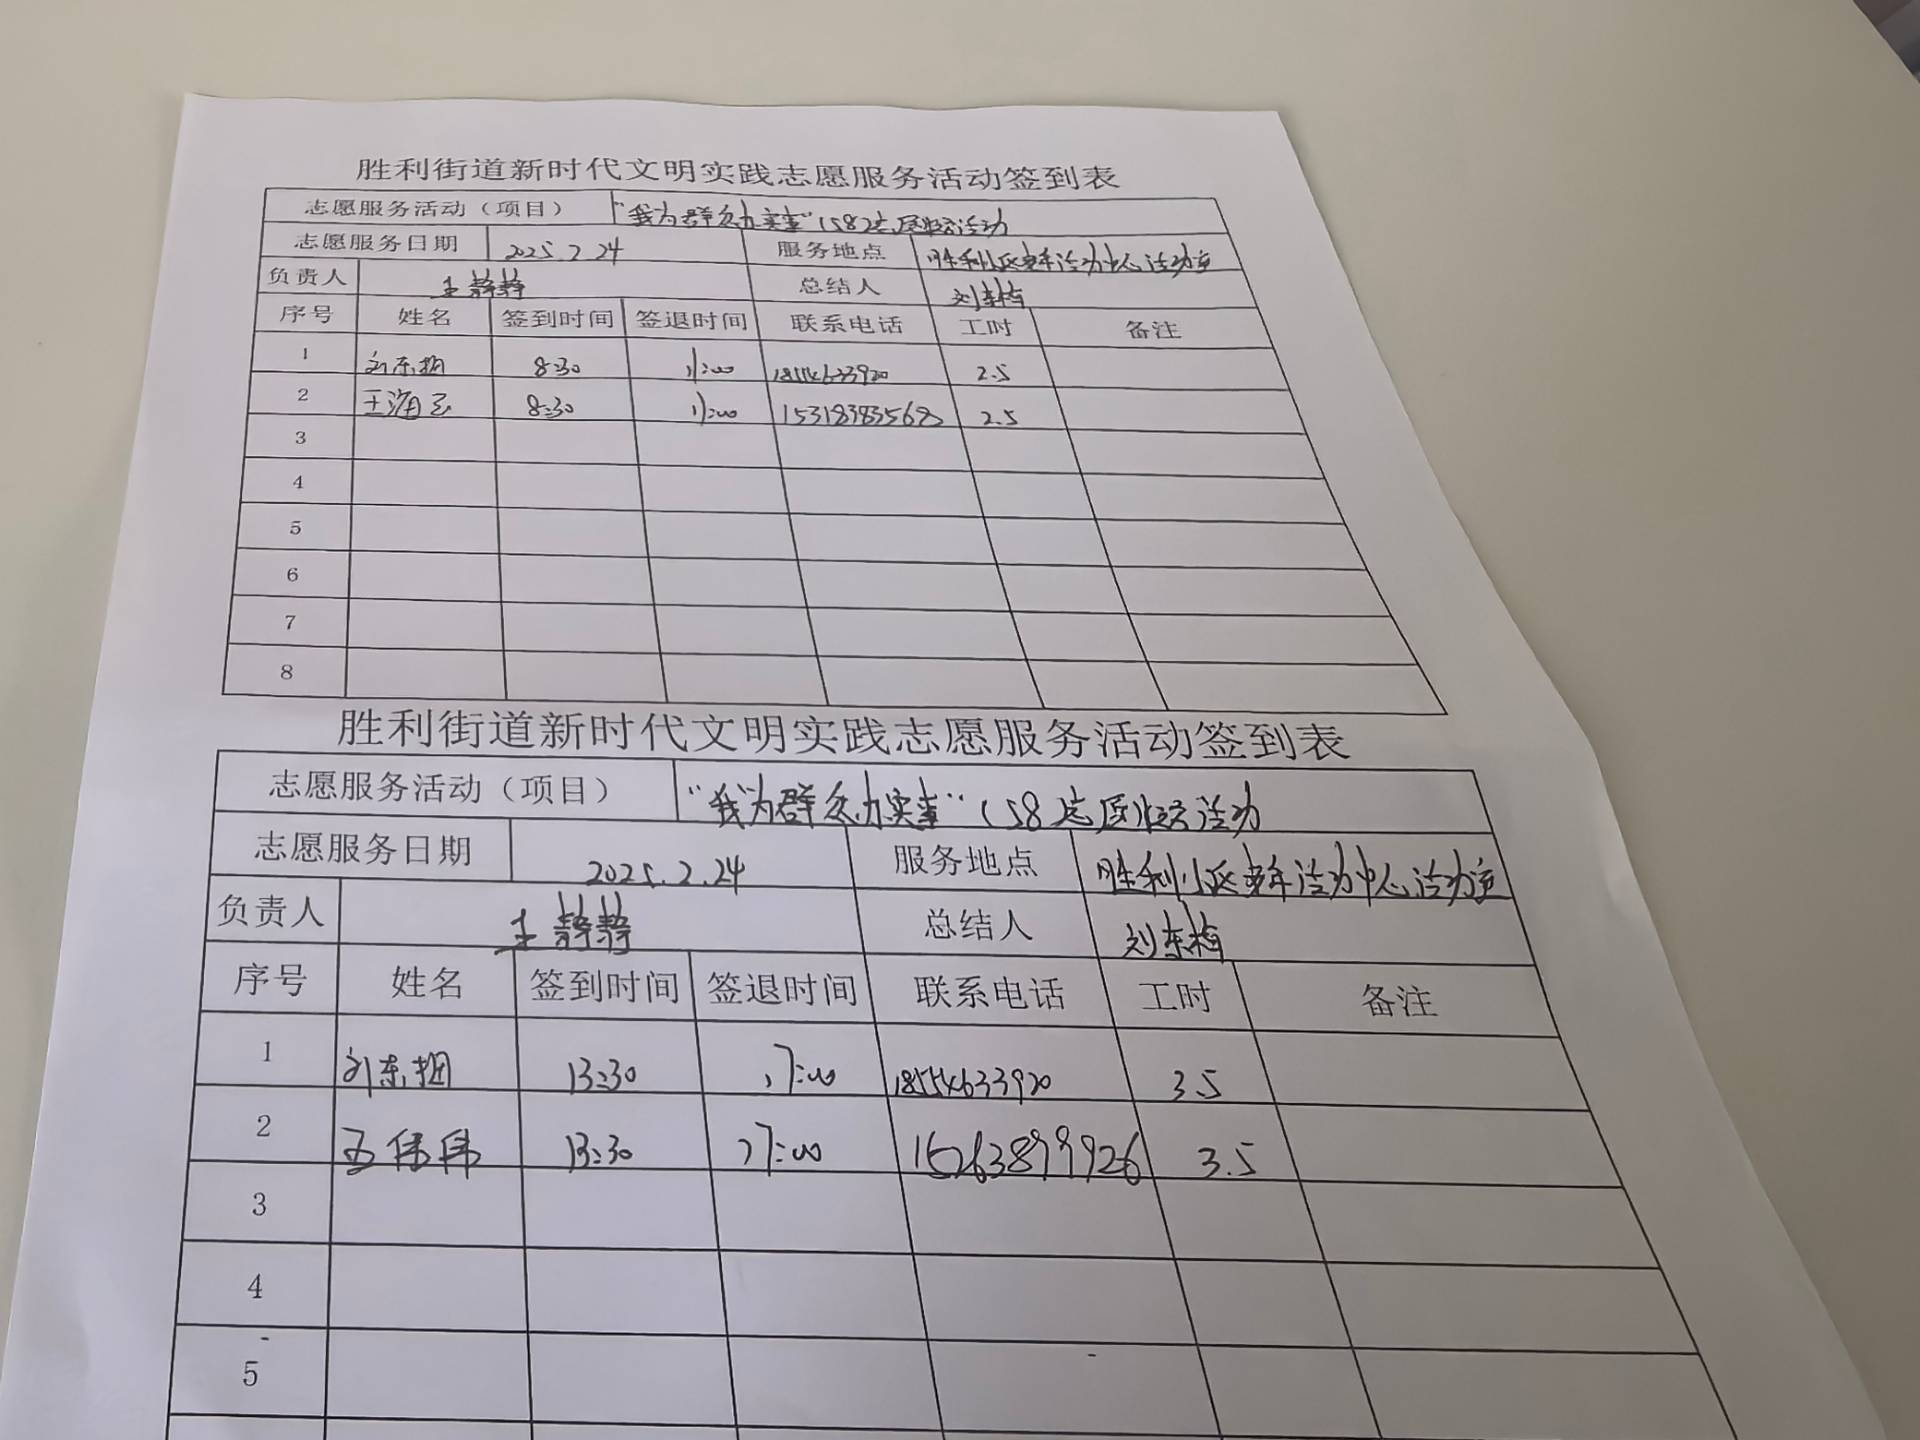 胜利街道新时代文明实践志愿服务活动签到表
志愿服务活动（项目） "我为群众办实事"（58志愿服务活动
志愿服务日期 2025.2.24 服务地点 胜利小区老年活动中心活动室
负责人 王静静 总结人 刘东梅
序号 姓名 签到时间 签退时间 联系电话 工时 备注
1 刘东 8:30 11:00 18554633920 2.5
2 王海 8:30 11:00 15318383568 2.5
3
4
5
6
7
8
胜利街道新时代文明实践志愿服务活动签到表
志愿服务活动（项目） "我为群众办实事"（58志愿服务活动
志愿服务日期 2025.2.24 服务地点 胜利小区老年活动中心活动室
负责人 王静静 总结人 刘东梅
序号 姓名 签到时间 签退时间 联系电话 工时 备注
1 刘东 13:30 17:00 18554633920 3.5
2 伟伟 13:30 17:00 15263899926 3.5
3
4
5